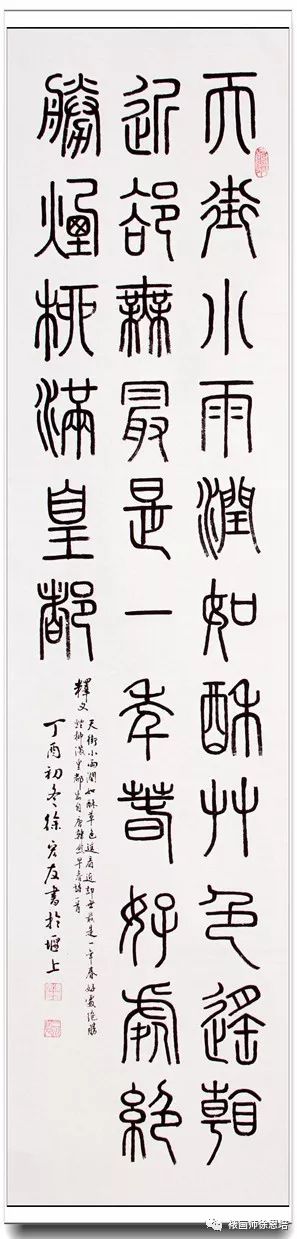 天街小雨潤如酥艸色遙看
近卻無最是一年春好處絕
勝煙柳滿皇都
釋文
天街小雨潤如酥草色遥看近却無最是一年春好處絕勝
煙柳滿皇都 唐韓愈早春詩一首
丁酉初冬徐友書於堰上
裱画师徐恩培